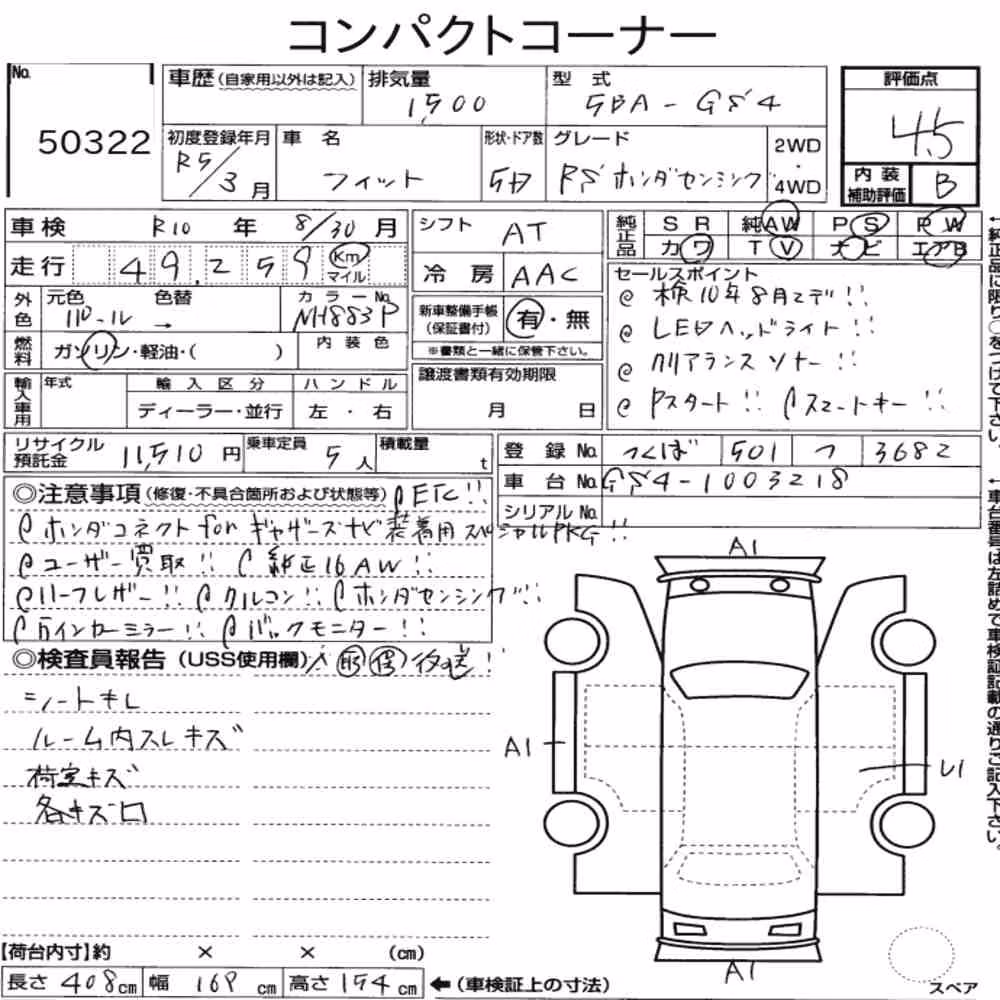 コンパクトコーナー
No.
50322
車歴 (自家用以外は記入)
排気量
1,500
型 式
5BA-GS4
評価点
4.5
初度登録年月
R5/3月
車 名
フィット
形状・ドア数
5D
グレード
RS ホンダセンシング
2WD
・
4WD
内 装
補助評価
B
車検 R10 年 8/30 月
シフト AT
純正品
SR 純AW PS PW
カワ TV ナビ エアB
走行 49,259 Km マイル
冷 房 AAC
セールスポイント
検10年8月マデ!!
LEDヘッドライト!!
クリアランスソナー!!
Pスタート!! スマートキー!!
外色 元色 色替 カラーNo.
パール → NH883P
新車整備手帳
(保証書付)
有・無
※書類と一緒に保管下さい。
燃料 ガソリン・軽油・( )
内 装 色
譲渡書類有効期限
月 日
輸入車用 年式 輸 入 区 分 ハ ン ド ル
ディーラー・並行 左・右
リサイクル
預託金
11,510 円
乗車定員
5人
積載量
t
登 録 No. つくば 501 つ 3682
車 台 No. GS4-1003218
シリアルNo.
◎注意事項 (修復・不具合箇所および状態等) ETC!!
ホンダコネクト for ギャザーズナビ装着用スペシャルPKG!!
ユーザー買取!! 純正16AW!!
ハーフレザー!! クルコン!! ホンダセンシング!!
インカーミラー!! バックモニター!!
◎検査員報告 (USS使用欄) 取 保 後送!
シートキレ
ルーム内スレキズ
荷室キズ
各キズ
A1
A1
U1
A1
【荷台内寸】約 × × (cm)
長さ 408cm 幅 169cm 高さ 154cm ←(車検証上の寸法)
スペア
←純正品に限り○をつけて下さい。
←車台番号は左詰めで車検証記載の通りご記入下さい。